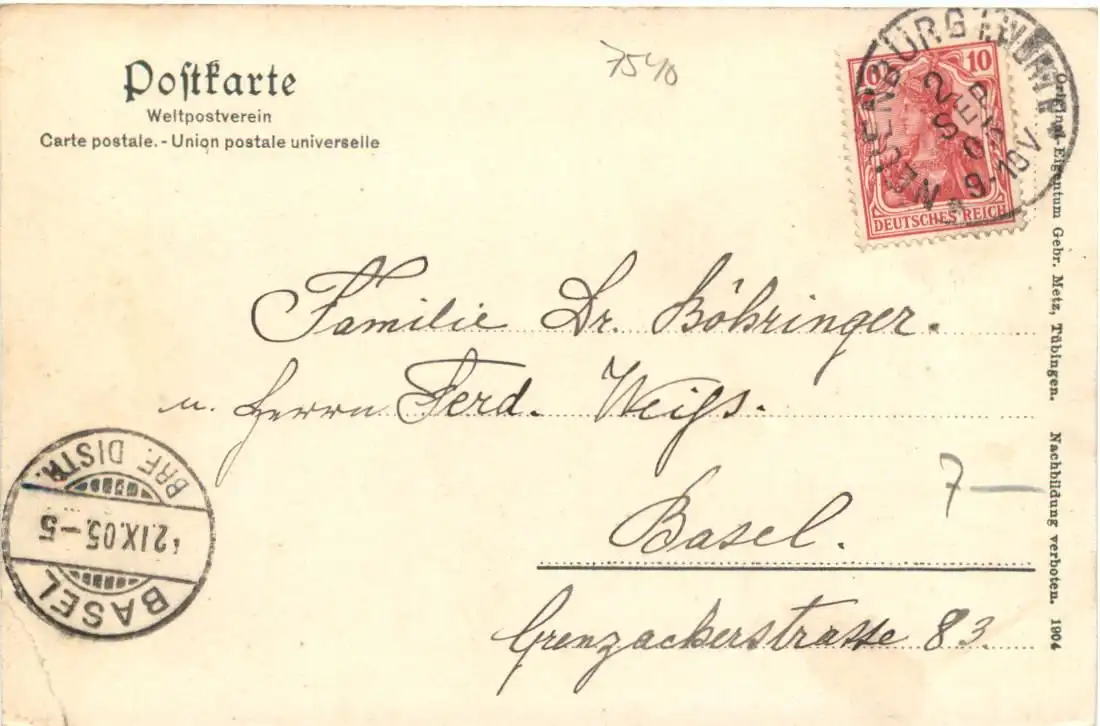 Postkarte
Weltpostverein
Carte postale. - Union postale universelle
7540
10
DEUTSCHES REICH
NEUENBÜRG
2 SEP
05
9-10V
Familie Dr. Böhringer.
u. Herrn Ferd. Weiss.
Basel.
Grenzackerstrasse 83.
7 —
BASEL
2.IX.05.-5
BRF. DISTR.
Original-Eigentum Gebr. Metz, Tübingen. Nachbildung verboten. 1904